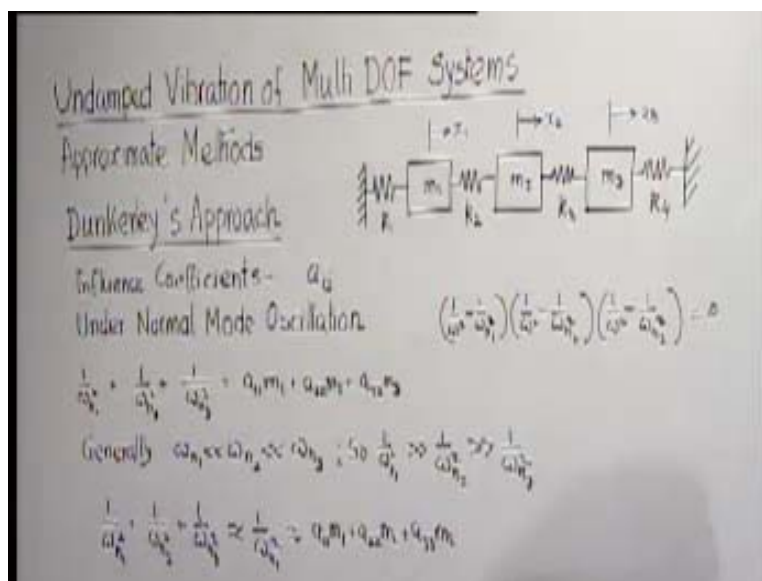 Undamped Vibration of Multi DOF Systems
Approximate Methods
Dunkerley's Approach
m₁ m₂ m₃
k₂ k₃ k₄
Influence Coefficients -
Under Normal Mode Oscillation
(1/ω² - 1/ωₙ₁²)(1/ω² - 1/ωₙ₂²)(1/ω² - 1/ωₙ₃²) = 0
1/ωₙ₁² + 1/ωₙ₂² + 1/ωₙ₃² = a₁₁m₁ + a₂₂m₂ + a₃₃m₃
Generally ωₙ₁ << ωₙ₂ << ωₙ₃ ; So 1/ωₙ₁² >> 1/ωₙ₂² >> 1/ωₙ₃²
1/ωₙ₁² + 1/ωₙ₂² + 1/ωₙ₃² ≈ 1/ωₙ₁² = a₁₁m₁ + a₂₂m₂ + a₃₃m₃